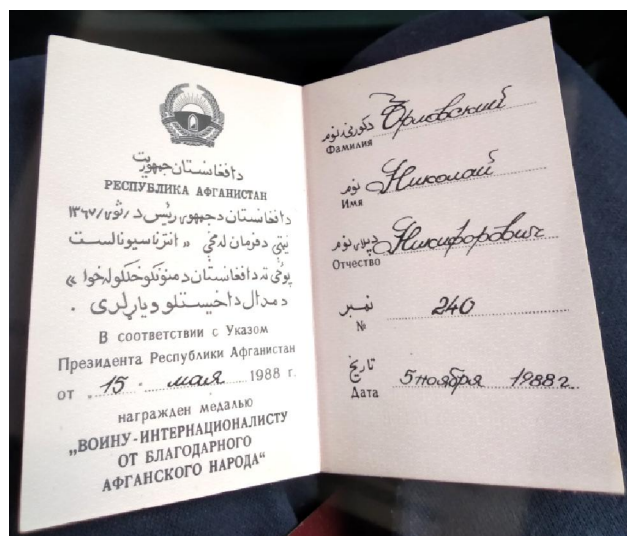 دافغانستان جمهوریت
РЕСПУБЛИКА АФГАНИСТАН
دافغانستان دجمهوری رئیس د / ثور / ۱۳۶۷
نیټې دفرمان له مخې « انترناسیونالست
پوځی ته دافغانستان دمننونکو خلکو له خوا »
دمدال داخیستلو ویاړ لری .
В соответствии с Указом
Президента Республики Афганистан
от „ 15 “ мая 1988 г.
награжден медалью
„ВОИНУ-ИНТЕРНАЦИОНАЛИСТУ
ОТ БЛАГОДАРНОГО
АФГАНСКОГО НАРОДА“
دکورنۍ نوم Орловский
Фамилия
نوم Николай
Имя
دپلار نوم Никифорович
Отчество
نمبر 240
№
تاریخ 5 ноября 1988 г.
Дата